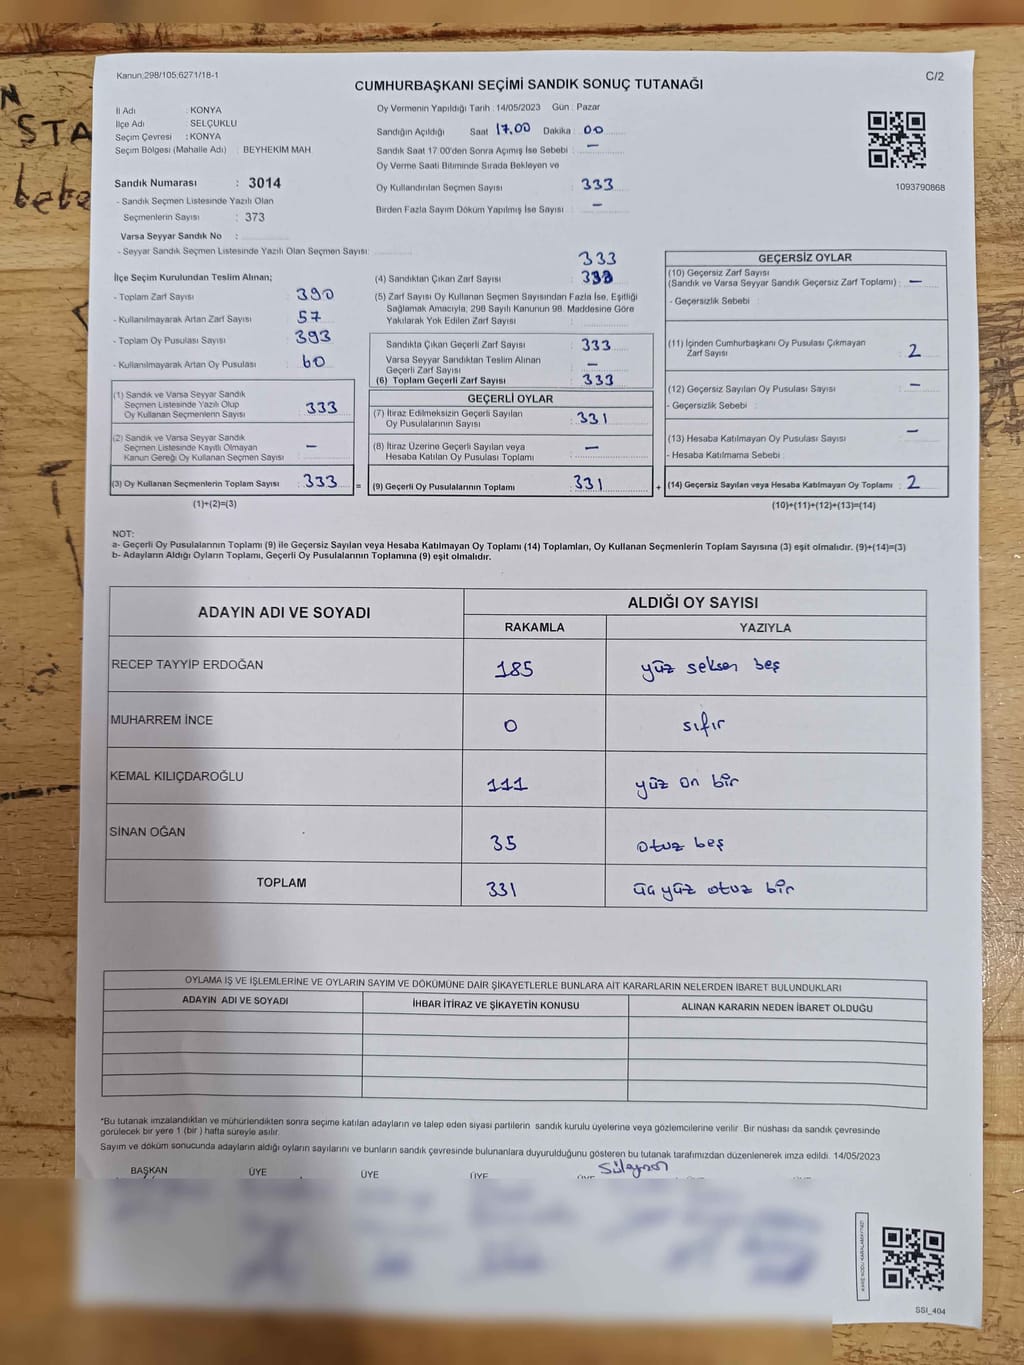 Kanun:298/105;6271/18-1
C/2
CUMHURBAŞKANI SEÇİMİ SANDIK SONUÇ TUTANAĞI
İl Adı : KONYA
İlçe Adı : SELÇUKLU
Seçim Çevresi : KONYA
Seçim Bölgesi (Mahalle Adı) : BEYHEKİM MAH
Sandık Numarası : 3014
- Sandık Seçmen Listesinde Yazılı Olan
Seçmenlerin Sayısı : 373
Varsa Seyyar Sandık No :
- Seyyar Sandık Seçmen Listesinde Yazılı Olan Seçmen Sayısı:
Oy Vermenin Yapıldığı Tarih : 14/05/2023 Gün : Pazar
Sandığın Açıldığı Saat 17.00 Dakika : 00
Sandık Saat 17:00'den Sonra Açımış İse Sebebi : —
Oy Verme Saati Bitiminde Sırada Bekleyen ve
Oy Kullandırılan Seçmen Sayısı : 333
Birden Fazla Sayım Döküm Yapılmış İse Sayısı : —
1093790868
İlçe Seçim Kurulundan Teslim Alınan;
- Toplam Zarf Sayısı : 390
- Kullanılmayarak Artan Zarf Sayısı : 57
- Toplam Oy Pusulası Sayısı : 393
- Kullanılmayarak Artan Oy Pusulası : 60
(1) Sandık ve Varsa Seyyar Sandık
Seçmen Listesinde Yazılı Olup
Oy Kullanan Seçmenlerin Sayısı : 333
(2) Sandık ve Varsa Seyyar Sandık
Seçmen Listesinde Kayıtlı Olmayan
Kanun Gereği Oy Kullanan Seçmen Sayısı : —
(3) Oy Kullanan Seçmenlerin Toplam Sayısı : 333 =
(1)+(2)=(3)
333
(4) Sandıktan Çıkan Zarf Sayısı : 333
(5) Zarf Sayısı Oy Kullanan Seçmen Sayısından Fazla İse, Eşitliği
Sağlamak Amacıyla; 298 Sayılı Kanunun 98. Maddesine Göre
Yakılarak Yok Edilen Zarf Sayısı :
Sandıkta Çıkan Geçerli Zarf Sayısı : 333
Varsa Seyyar Sandıktan Teslim Alınan
Geçerli Zarf Sayısı : —
(6) Toplam Geçerli Zarf Sayısı : 333
GEÇERLİ OYLAR
(7) İtiraz Edilmeksizin Geçerli Sayılan
Oy Pusulalarının Sayısı : 331
(8) İtiraz Üzerine Geçerli Sayılan veya
Hesaba Katılan Oy Pusulası Toplamı : —
(9) Geçerli Oy Pusulalarının Toplamı : 331 +
GEÇERSİZ OYLAR
(10) Geçersiz Zarf Sayısı
(Sandık ve Varsa Seyyar Sandık Geçersiz Zarf Toplamı) : —
- Geçersizlik Sebebi :
(11) İçinden Cumhurbaşkanı Oy Pusulası Çıkmayan
Zarf Sayısı : 2
(12) Geçersiz Sayılan Oy Pusulası Sayısı : —
- Geçersizlik Sebebi :
(13) Hesaba Katılmayan Oy Pusulası Sayısı : —
- Hesaba Katılmama Sebebi :
(14) Geçersiz Sayılan veya Hesaba Katılmayan Oy Toplamı : 2
(10)+(11)+(12)+(13)=(14)
NOT:
a- Geçerli Oy Pusulalarının Toplamı (9) ile Geçersiz Sayılan veya Hesaba Katılmayan Oy Toplamı (14) Toplamları, Oy Kullanan Seçmenlerin Toplam Sayısına (3) eşit olmalıdır. (9)+(14)=(3)
b- Adayların Aldığı Oyların Toplamı, Geçerli Oy Pusulalarının Toplamına (9) eşit olmalıdır.
ADAYIN ADI VE SOYADI
ALDIĞI OY SAYISI
RAKAMLA YAZIYLA
RECEP TAYYİP ERDOĞAN 185 yüz seksen beş
MUHARREM İNCE 0 sıfır
KEMAL KILIÇDAROĞLU 111 yüz on bir
SİNAN OĞAN 35 otuz beş
TOPLAM 331 üç yüz otuz bir
OYLAMA İŞ VE İŞLEMLERİNE VE OYLARIN SAYIM VE DÖKÜMÜNE DAİR ŞİKAYETLERLE BUNLARA AİT KARARLARIN NELERDEN İBARET BULUNDUKLARI
ADAYIN ADI VE SOYADI İHBAR İTİRAZ VE ŞİKAYETİN KONUSU ALINAN KARARIN NEDEN İBARET OLDUĞU
*Bu tutanak imzalandıktan ve mühürlendikten sonra seçime katılan adayların ve talep eden siyasi partilerin sandık kurulu üyelerine veya gözlemcilerine verilir. Bir nüshası da sandık çevresinde
görülecek bir yere 1 (bir) hafta süreyle asılır.
Sayım ve döküm sonucunda adayların aldığı oyların sayılarını ve bunların sandık çevresinde bulunanlara duyurulduğunu gösteren bu tutanak tarafımızdan düzenlenerek imza edildi. 14/05/2023
BAŞKAN ÜYE ÜYE ÜYE ÜYE Süleyman
SSİ_404